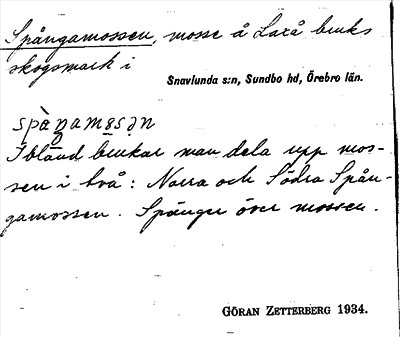 Spångamossen, mosse å Laxå bruks
skogsmark i
Snavlunda s:n, Sundbo hd, Örebro län.
spàŋamo̱sən
Ibland brukar man dela upp mos-
sen i två: Norra och Södra Spån-
gamossen. Spänger över mossen.
GÖRAN ZETTERBERG 1934.